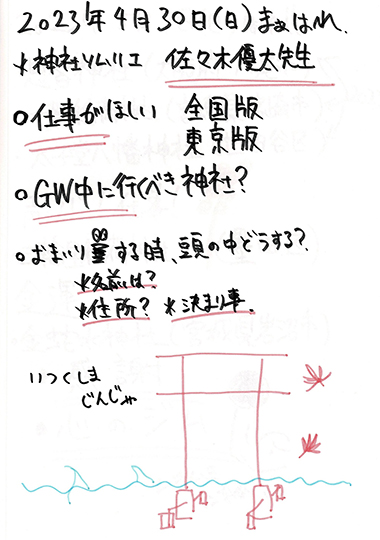 2023年4月30日(日)まぁはれ.
*神社ソムリエ 佐々木優太先生
○仕事がほしい 全国版
東京版
○GW中に行くべき神社?
○おまいりする時、頭の中どうする?
*名前は?
*住所? *決まり事.
いつくしま
じんじゃ